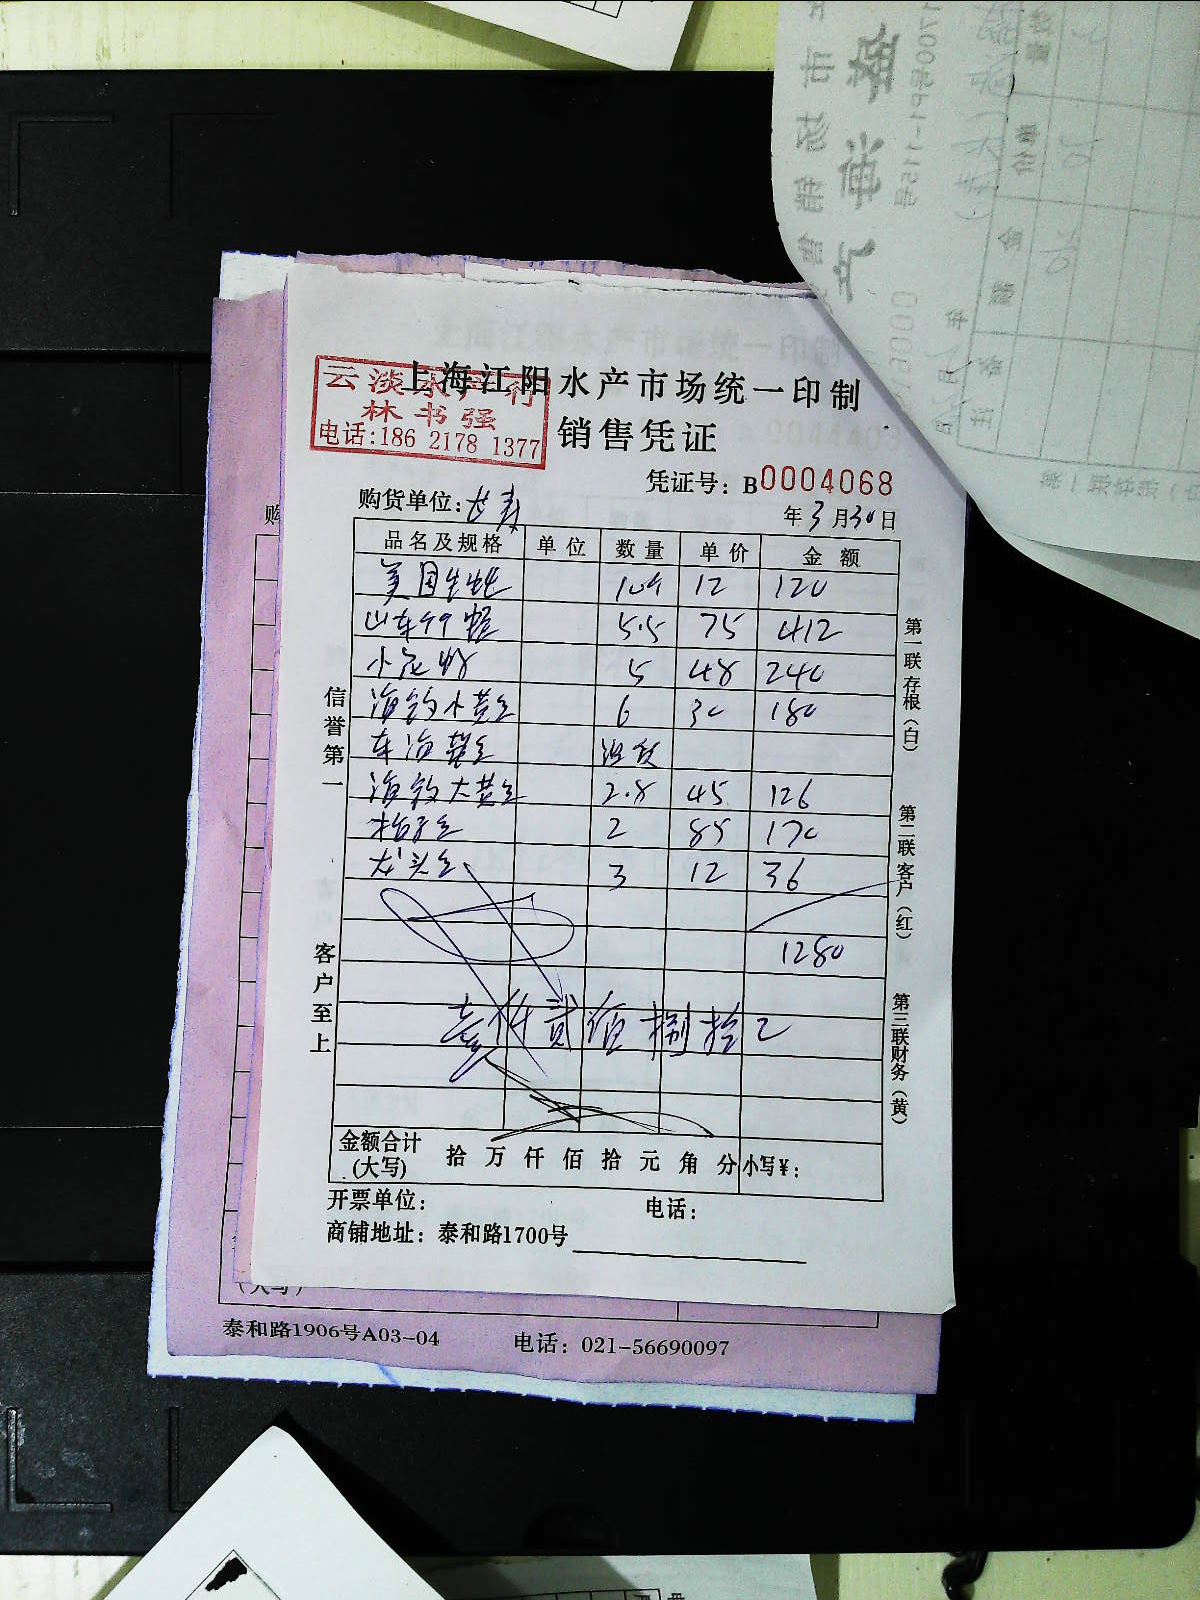 上海江阳水产市场统一印制
云淡水产行
林书强
电话:186 2178 1377
销售凭证
凭证号: B0004068
购货单位:
年3月30日
品名及规格 单位 数量 单价 金额
美国生蚝 10个 12 120
山东 5.5 75 412
小 5 48 240
海钓小黄鱼 6 30 180
东海黄鱼 没放
海钓大黄鱼 2.8 45 126
2 85 170
龙头鱼 3 12 36
1280
壹仟贰佰捌拾元
信誉第一
客户至上
第一联存根(白)
第二联客户(红)
第三联财务(黄)
金额合计(大写) 拾万仟佰拾元角分 小写¥:
开票单位: 电话:
商铺地址: 泰和路1700号
购
(大写)
泰和路1906号A03-04 电话: 021-56690097